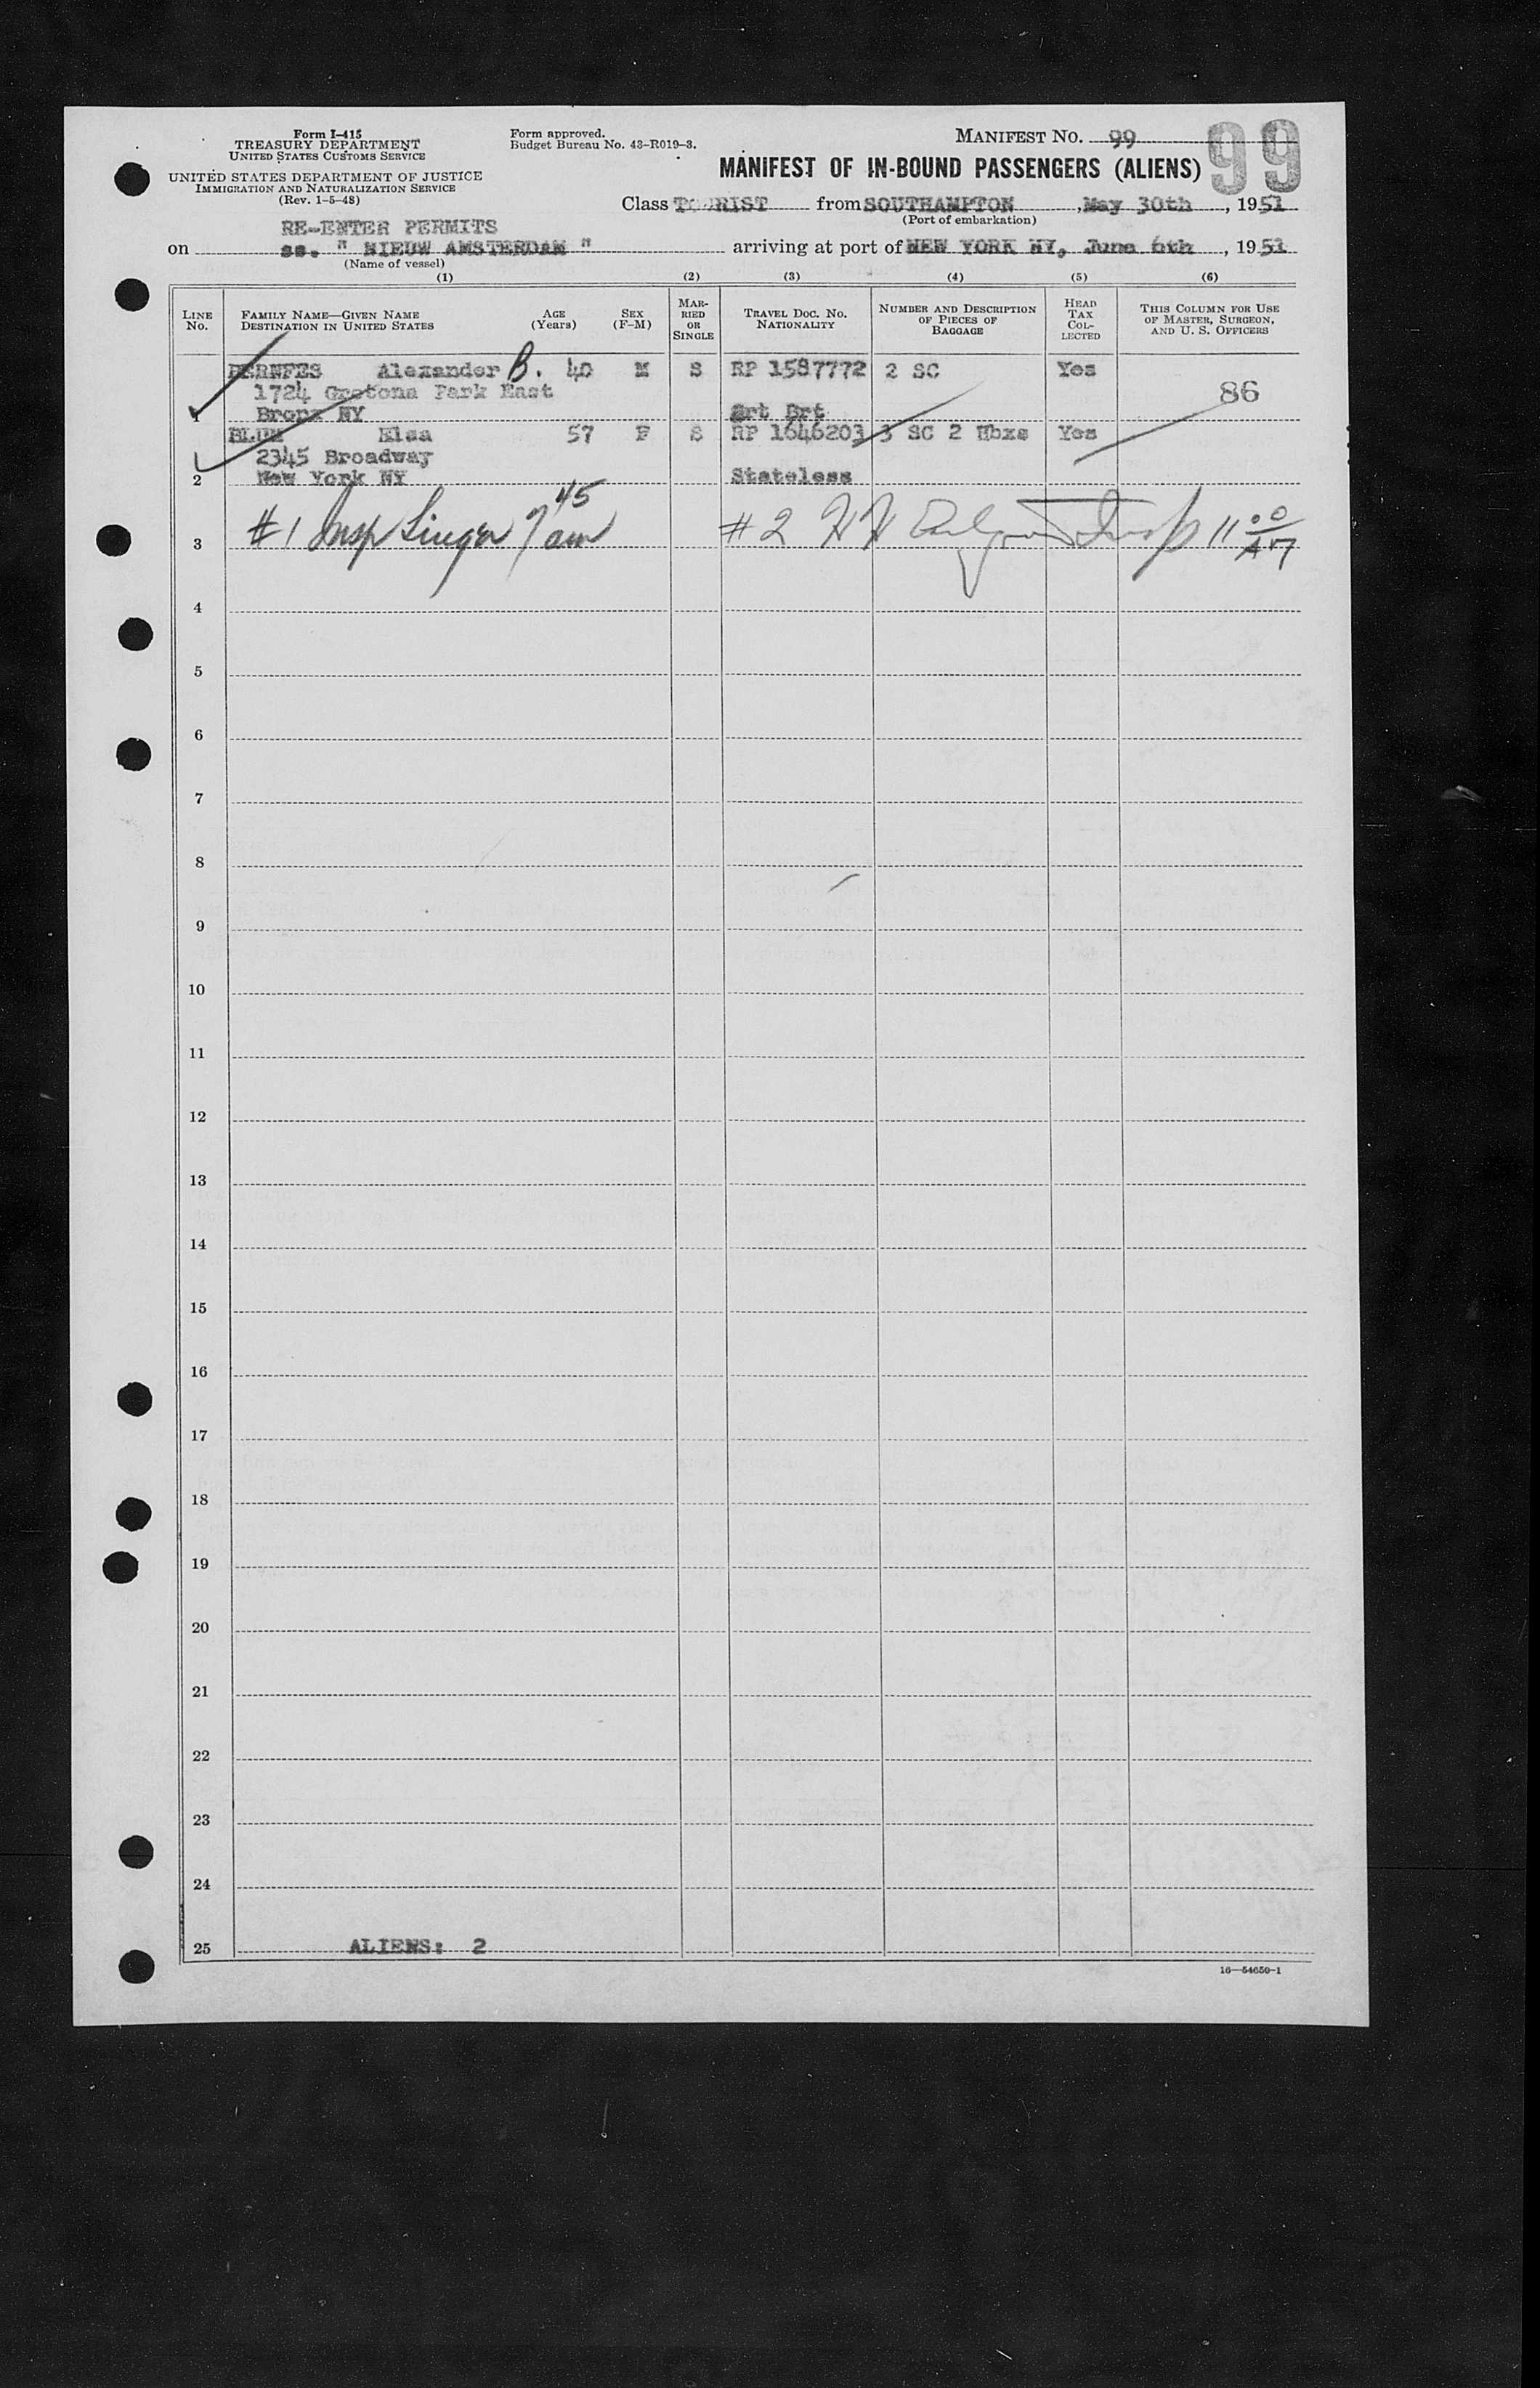 Form I-415
TREASURY DEPARTMENT
UNITED STATES CUSTOMS SERVICE
UNITED STATES DEPARTMENT OF JUSTICE
IMMIGRATION AND NATURALIZATION SERVICE
(Rev. 1-5-48)
Form approved.
Budget Bureau No. 43-R019-3.
MANIFEST NO. 99
99
MANIFEST OF IN-BOUND PASSENGERS (ALIENS)
Class TOURIST from SOUTHAMPTON, May 30th, 1951
(Port of embarkation)
RE-ENTER PERMITS
on ss. " NIEUW AMSTERDAM " arriving at port of NEW YORK NY, June 6th, 1951
(Name of vessel)
(1) (2) (3) (4) (5) (6)
LINE No. FAMILY NAME—GIVEN NAME DESTINATION IN UNITED STATES AGE (Years) SEX (F-M) MARRIED OR SINGLE TRAVEL DOC. NO. NATIONALITY NUMBER AND DESCRIPTION OF PIECES OF BAGGAGE HEAD TAX COLLECTED THIS COLUMN FOR USE OF MASTER, SURGEON, AND U. S. OFFICERS
BERNFES Alexander B. 40 M S RP 1587772 2 SC Yes
1724 Crotona Park East 86
1 Bronx NY Brt Brt
BLUM Elsa 57 F S RP 1646203 3 SC 2 Hbxs Yes
2345 Broadway
2 New York NY Stateless
3 #1 Insp Singer 7 45 am #2 Insp 11 00 AM
4
5
6
7
8
9
10
11
12
13
14
15
16
17
18
19
20
21
22
23
24
25 ALIENS: 2
16—54650-1